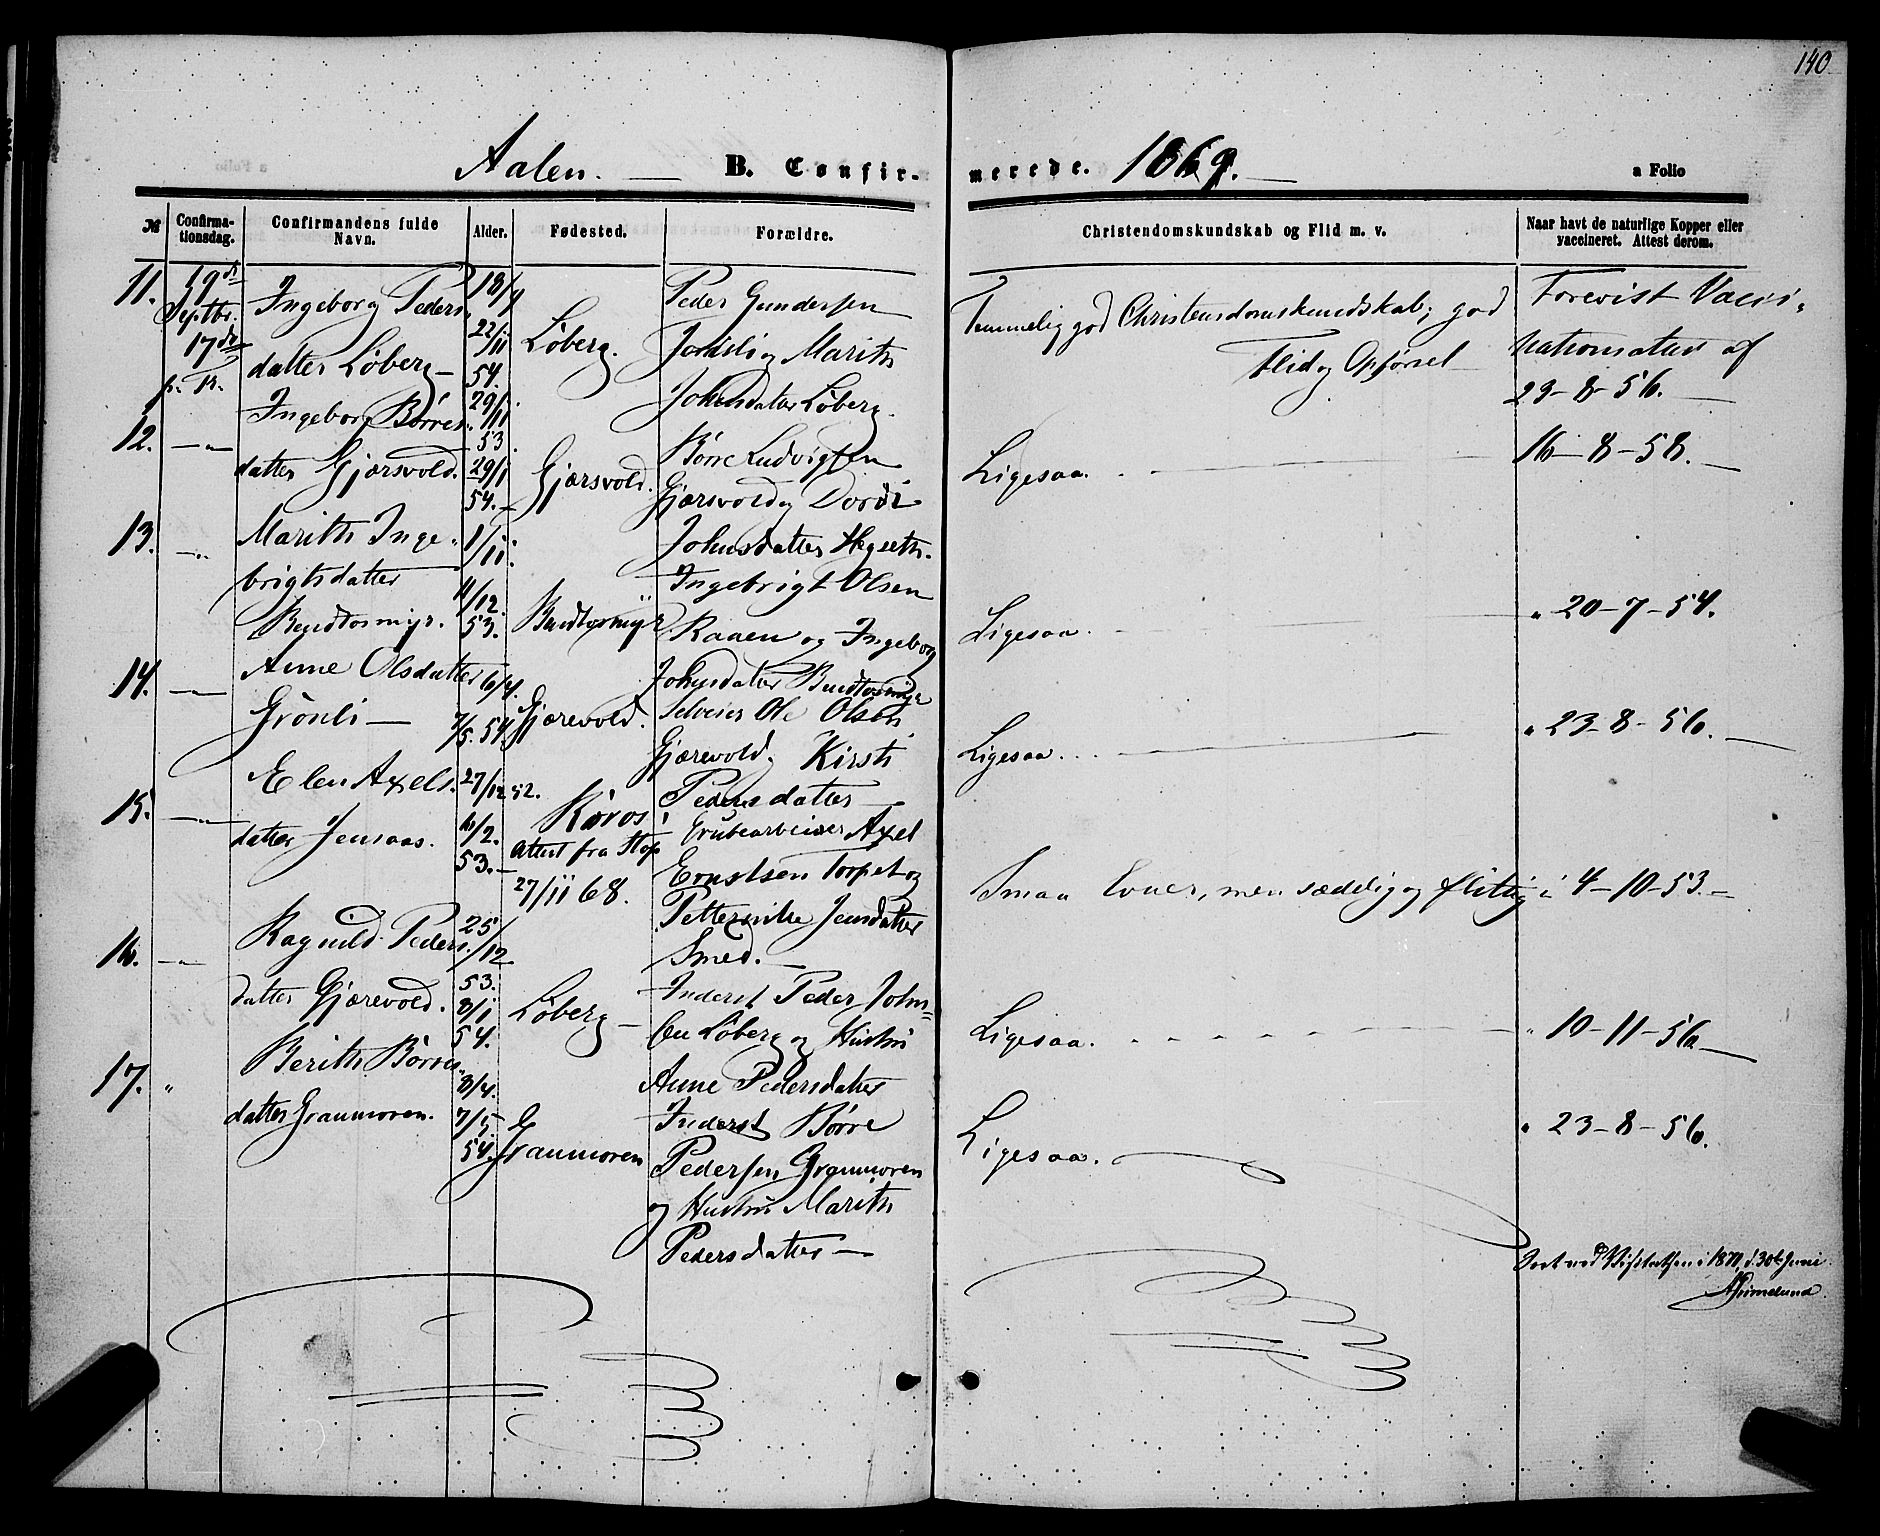 140
Aalen. — B. Confir-
merede. 1869. —
a Folio
№
Confirma-
tionsdag.
Confirmandens fulde
Navn.
Alder.
Fødested.
Forældre.
Christendomskundskab og Flid m. v.
Naar havt de naturlige Kopper eller
vaccineret. Attest derom.
11.
19de
Septbr.
17de
p. Tr.
Ingeborg Peders
datter Løberg —
18/4
22/11
54.
Løberg.
Peder Gundersen
og Marith
Johnsdatter Løberg.
Temmelig god Christendomskundskab; god
Flid og Opførsel
Forevist Vacci-
nationsattest af
23-8-56. —
12. —"—
Ingeborg Børres-
datter Gjærsvold.
29/11
53.
29/1
54. —
Gjærsvold.
Børre Ludvigsen
Gjærsvold og
Johnsdatter Hegseth.
Ligesaa. —
16-8-58. —
13. —"—
Marith Inge-
brigtsdatter
Bendtosmyr.
1/11.
11/12.
53.
Bendtosmyr
Ingebrigt Olsen
Raaen og Ingeborg
Johnsdatter Bendtosmyr
Ligesaa. —
" 20-7-54.
14. —"—
Anne Olsdatter
Grønli —
6/4.
7/5. 54.
Gjærevold.
Selveier Ole Olsen
Gjærevold og Kirsti
Pedersdatter —
Ligesaa. —
" 23-8-56. —
15. —"—
Elen Axels-
datter Jensaas.
27/12 52.
6/2.
53. —
Røros,
Attest fra Stop
27/11 68.
Grubearbeider Axel
Ernstsen Torpet og
Petternille Jensdatter
Smed. —
Smaa Evner, men sædelig og flittig
4-10-53. —
16. —"—
Ragnild Peders-
datter Gjærevold.
25/12
53.
8/1
54.
Løberg —
Inderst Peder John-
sen Løberg og Hustru
Anne Pedersdatter
Ligesaa. —
" 10-11-56. —
17. "
Berith Børres-
datter Granmoren.
8/4.
7/5.
54.
Granmoren
Inderst Børre
Pedersen Granmoren
og Hustru Marith
Pedersdatter —
Ligesaa.
" 23-8-56.
i 1870, d. 30te Juni